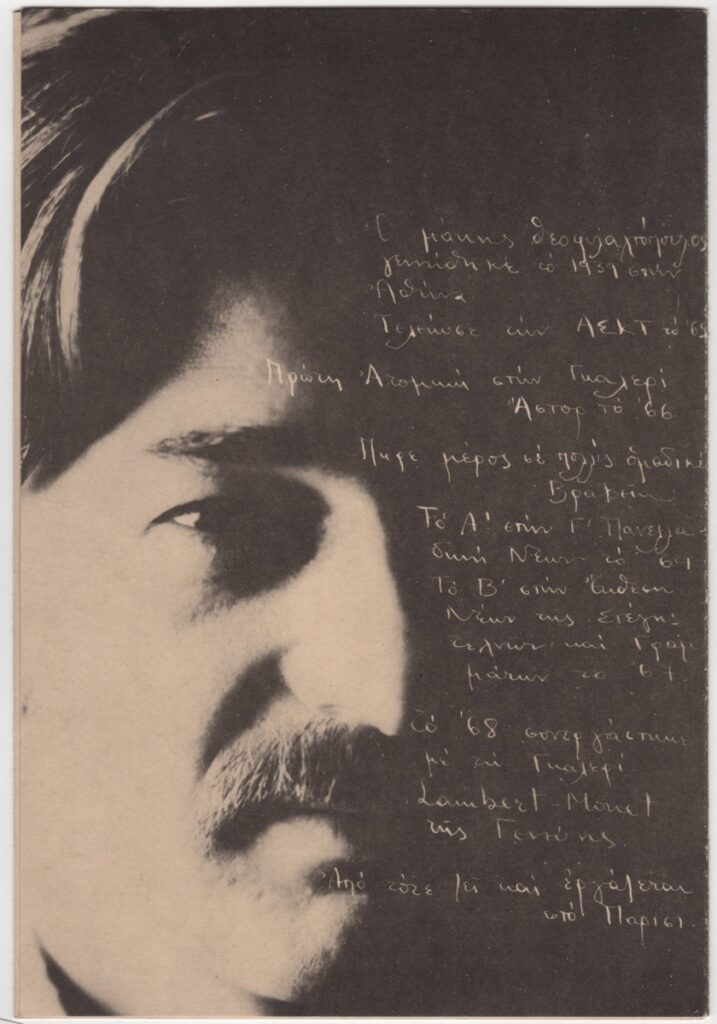 Ὁ μάκης θεοφυλακτόπουλος
γεννήθηκε τό 1939 στήν
Ἀθήνα
Τελείωσε τήν ΑΣΚΤ τό
Πρώτη Ἀτομική στήν Γκαλερί
Ἀστορ τό '66
Πῆρε μέρος σέ πολλές ὁμαδικές
Βραβεῖα
Τό Α' στήν Γ' Πανελλα-
δική Νέων τό
Τό Β' στήν Ἔκθεση
Νέων τῆς Στέγης
τεχνῶν καί Γραμ-
μάτων το '67
τό '68 συνεργάστηκε
μέ τή Γκαλερί
Lambert-Monet
τῆς Γενεύης.
Ἀπό τότε ζεῖ καί ἐργάζεται
στό Παρίσι.